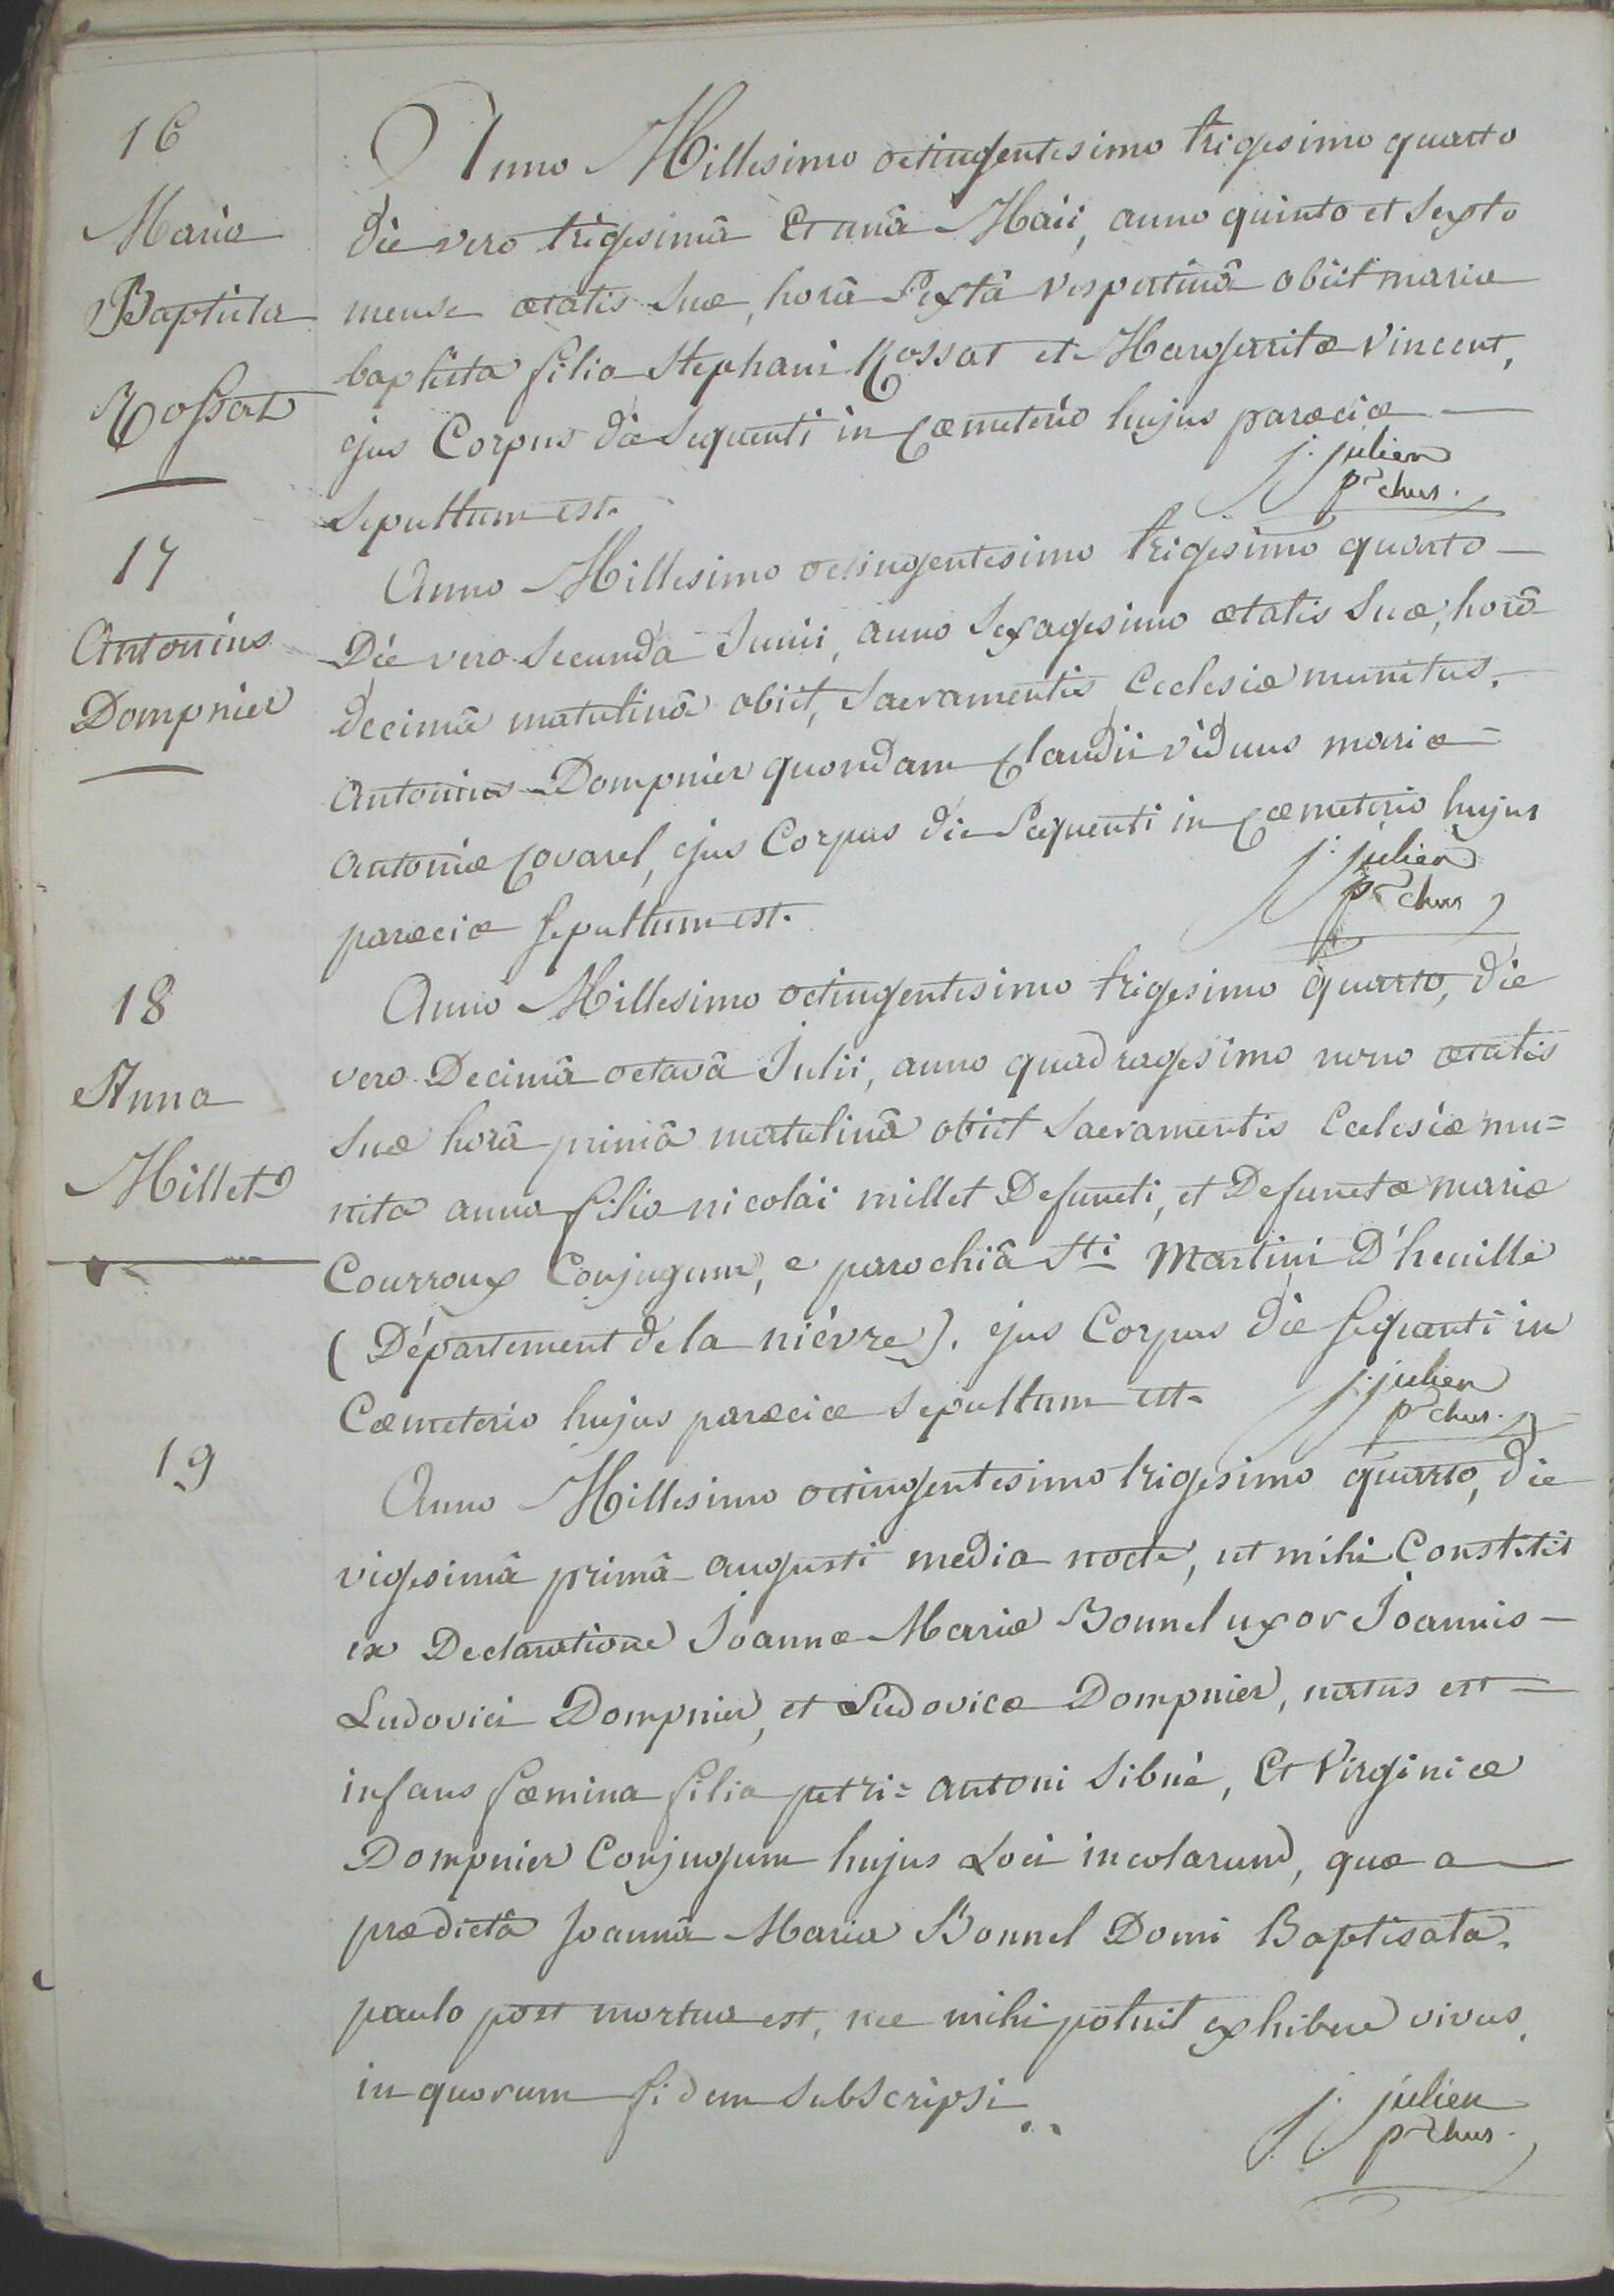 16
Maria
Baptista
Rossat
Anno Millesimo octingentesimo trigesimo quarto
die vero trigesimâ Et unâ Maii, anno quinto et Sexto
mense ætatis Suæ, horâ Sextâ vespertinâ obiit maria
baptista filia Stephani Rossat et Margaritæ Vincent,
ejus Corpus die Sequenti in Cœmeterio hujus parœciæ
Sepultum est.
j. julien
p~chus.
17
Antonius
Dompnier
Anno Millesimo octingentesimo trigesimo quarto
Die vero Secundâ Junii, anno Sexagesimo ætatis Suæ, horâ
decimâ matutinâ obiit, Sacramentis Ecclesiæ munitus,
Antonius Dompnier quondam Claudii viduus mariæ=
Antoniæ Covarel, ejus Corpus die Sequenti in Cœmeterio hujus
parœciæ Sepultum est.
j. julien
p~chus
18
Anna
Millet
Anno Millesimo octingentesimo trigesimo quarto, die
vero Decimâ octavâ Julii, anno quadragesimo nono ætatis
Suæ horâ primâ matutinâ obiit Sacramentis Ecclesiæ mu=
nita anna filia nicolai millet Defuncti, et Defunctæ mariæ
Courroux Conjugum, e parochiâ Sti Martini D'heuille
(Département de la nièvre). ejus Corpus die Sequenti in
Cœmeterio hujus parœciæ Sepultum est.
j. julien
p~chus.
19
Anno Millesimo octingentesimo trigesimo quarto, die
vigesimâ primâ augusti media nocte, ut mihi Constitit
ex Declaratione Joannæ Mariæ Bonnel uxor Joannis
Ludovici Dompnier, et Ludovicæ Dompnier, natus est=
infans fœmina filia petri= antoni Sibué, Et Virginiæ
Dompnier Conjugum hujus Loci incolarum, quæ a
prædictâ Joannâ Maria Bonnel Domi Baptisata,
paulo post mortua est, nec mihi potuit exhibere vivus,
in quorum fidem Subscripsi..
j. julien
p~chus.